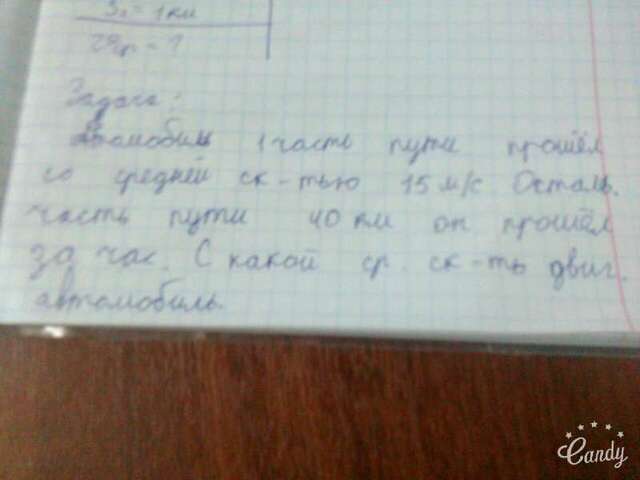 S₁ = 1 км
υср - ?
Задача:
Автомобиль 1 часть пути прошёл
со средней ск-тью 15 м/с Осталь.
часть пути 40 км он прошёл
за час. С какой ср. ск-ть двиг.
автомобиль.
Candy